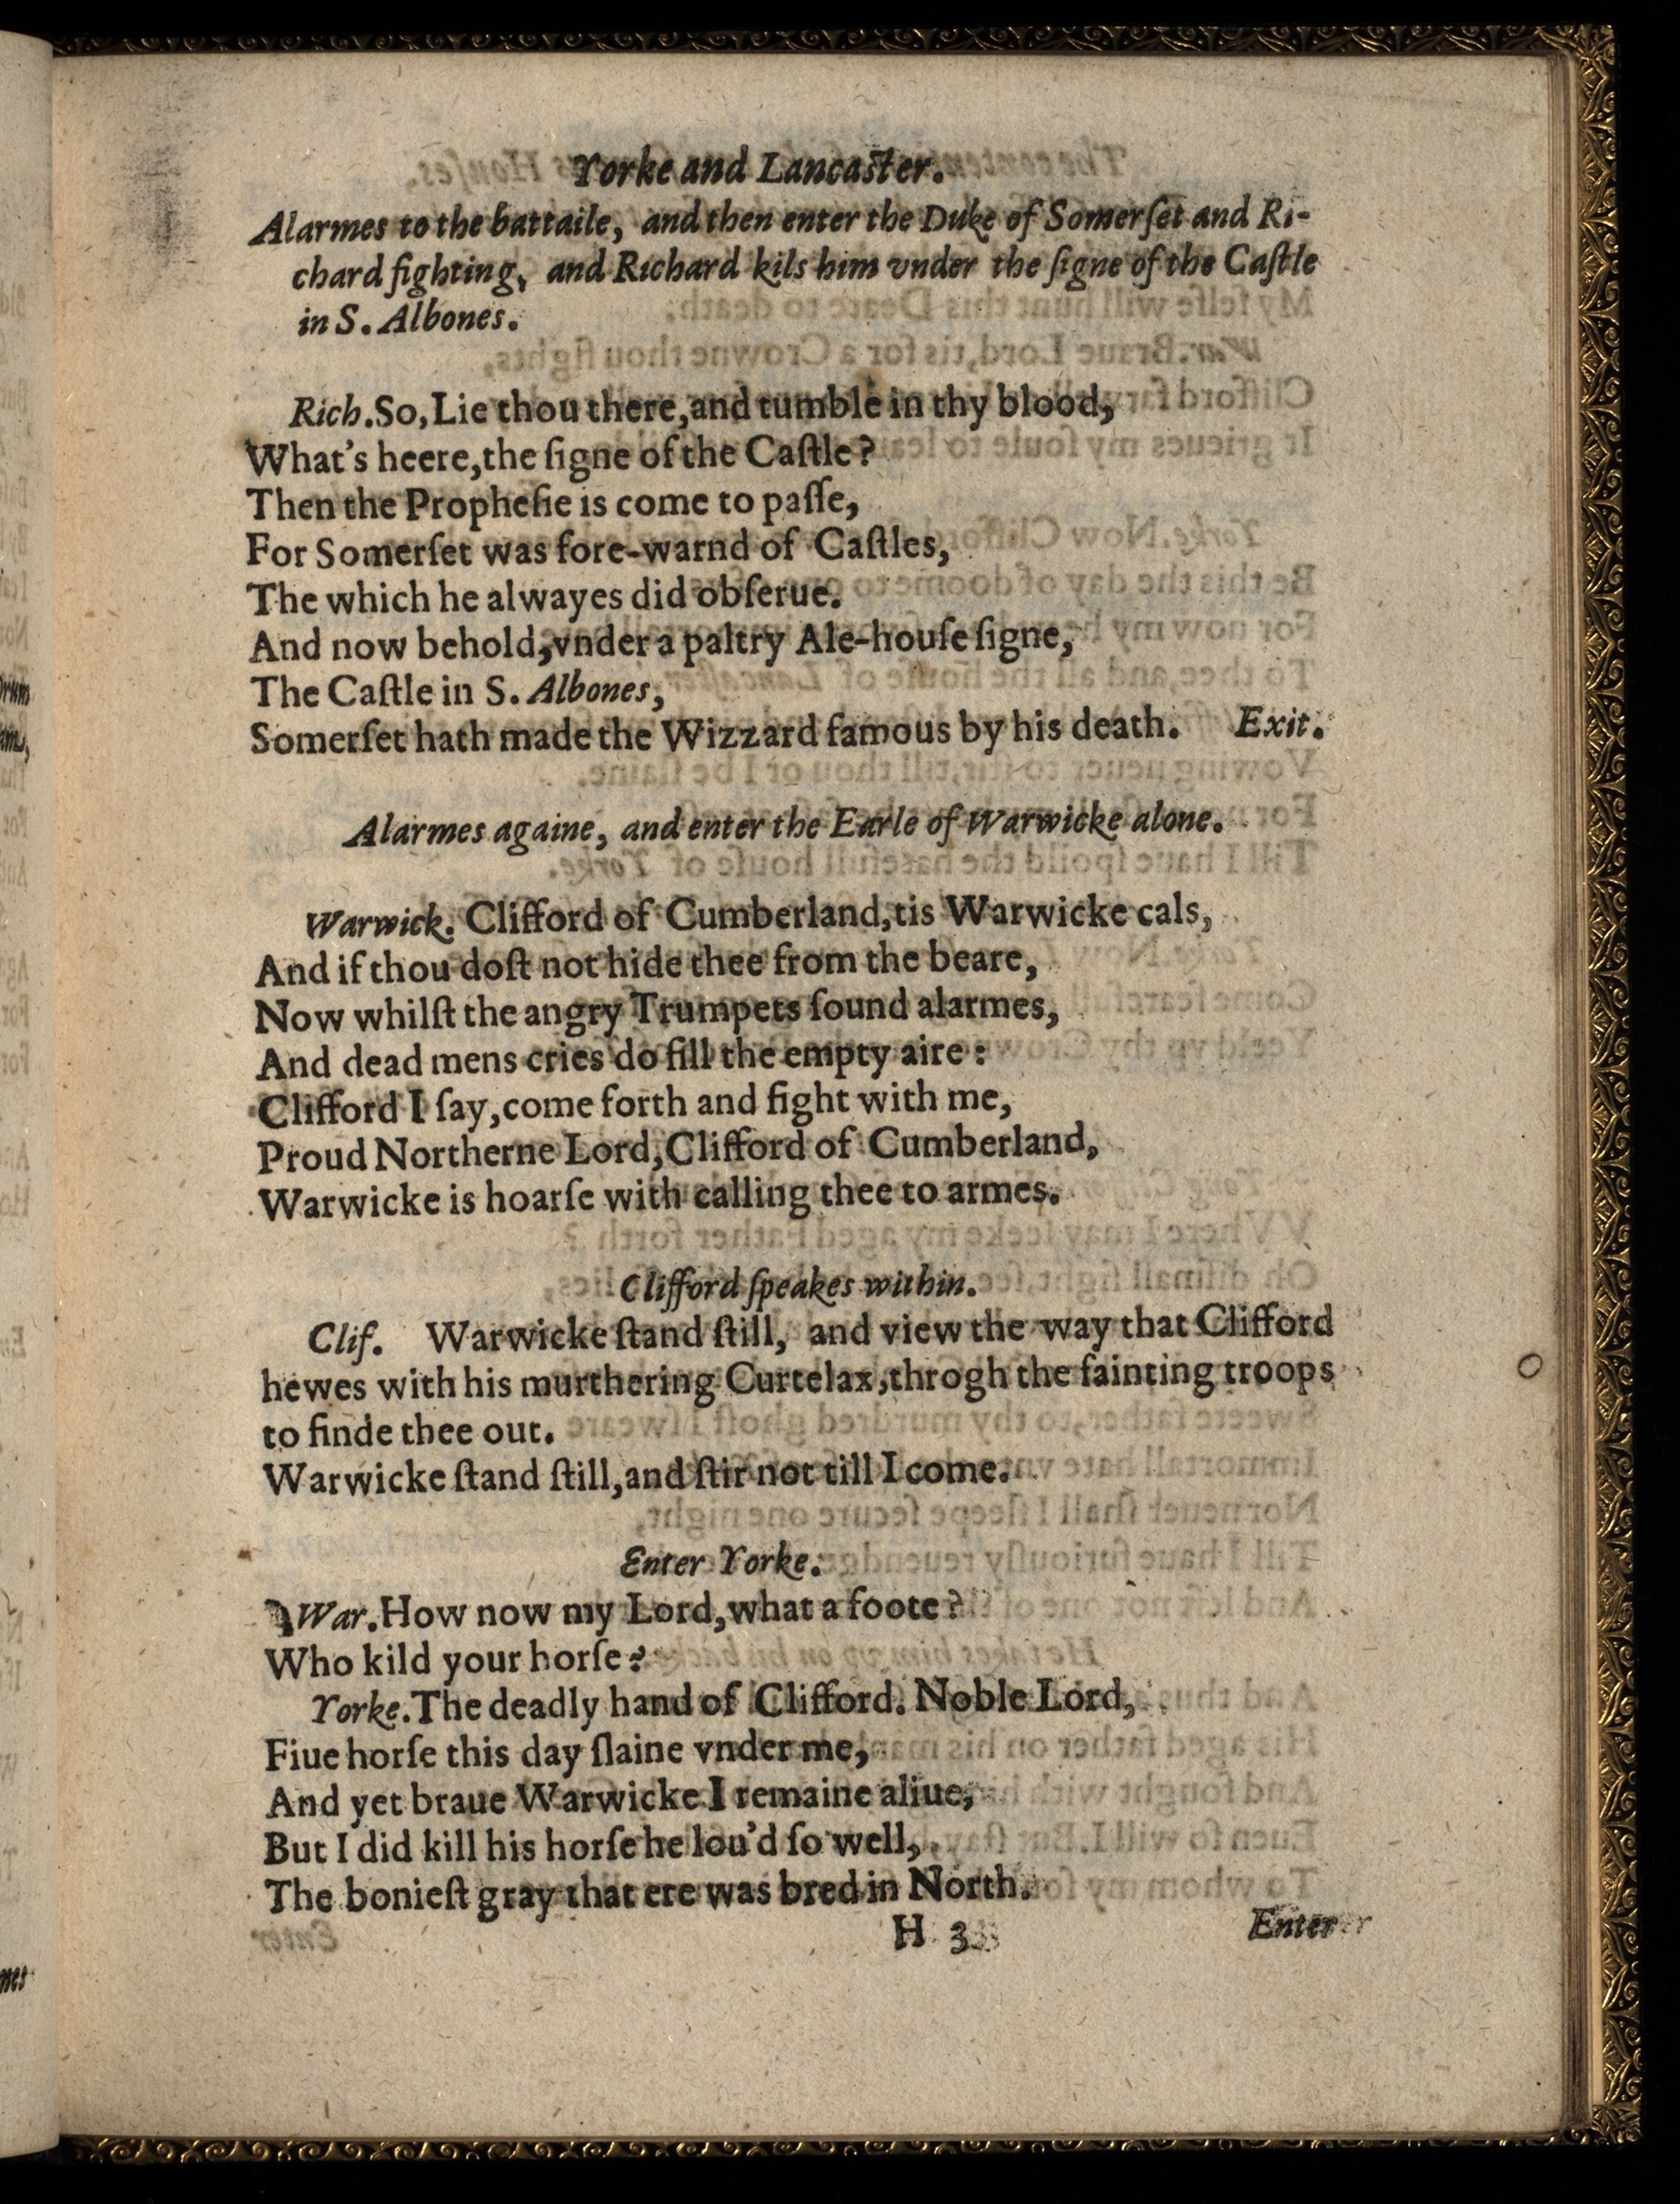 Yorke and Lancaſter.
Alarmes to the battaile, and then enter the Duke of Somerſet and Ri-
chard fighting, and Richard kils him vnder the ſigne of the Caſtle
in S. Albones.
Rich. So, Lie thou there, and tumble in thy blood,
What's heere, the ſigne of the Caſtle?
Then the Propheſie is come to paſſe,
For Somerſet was fore-warnd of Caſtles,
The which he alwayes did obſerue.
And now behold, vnder a paltry Ale-houſe ſigne,
The Caſtle in S. Albones,
Somerſet hath made the Wizzard famous by his death. Exit.
Alarmes againe, and enter the Earle of Warwicke alone.
Warwick. Clifford of Cumberland, tis Warwicke cals,
And if thou doſt not hide thee from the beare,
Now whilſt the angry Trumpets ſound alarmes,
And dead mens cries do fill the empty aire:
Clifford I ſay, come forth and fight with me,
Proud Northerne Lord, Clifford of Cumberland,
Warwicke is hoarſe with calling thee to armes.
Clifford ſpeakes within.
Clif. Warwicke ſtand ſtill, and view the way that Clifford
hewes with his murthering Curtelax, throgh the fainting troops
to finde thee out.
Warwicke ſtand ſtill, and ſtir not till I come.
Enter Yorke.
War. How now my Lord, what a foote?
Who kild your horſe?
Yorke. The deadly hand of Clifford. Noble Lord,
Fiue horſe this day ſlaine vnder me,
And yet braue Warwicke I remaine aliue,
But I did kill his horſe he lou'd ſo well,
The bonieſt gray that ere was bred in North.
H 3 Enter